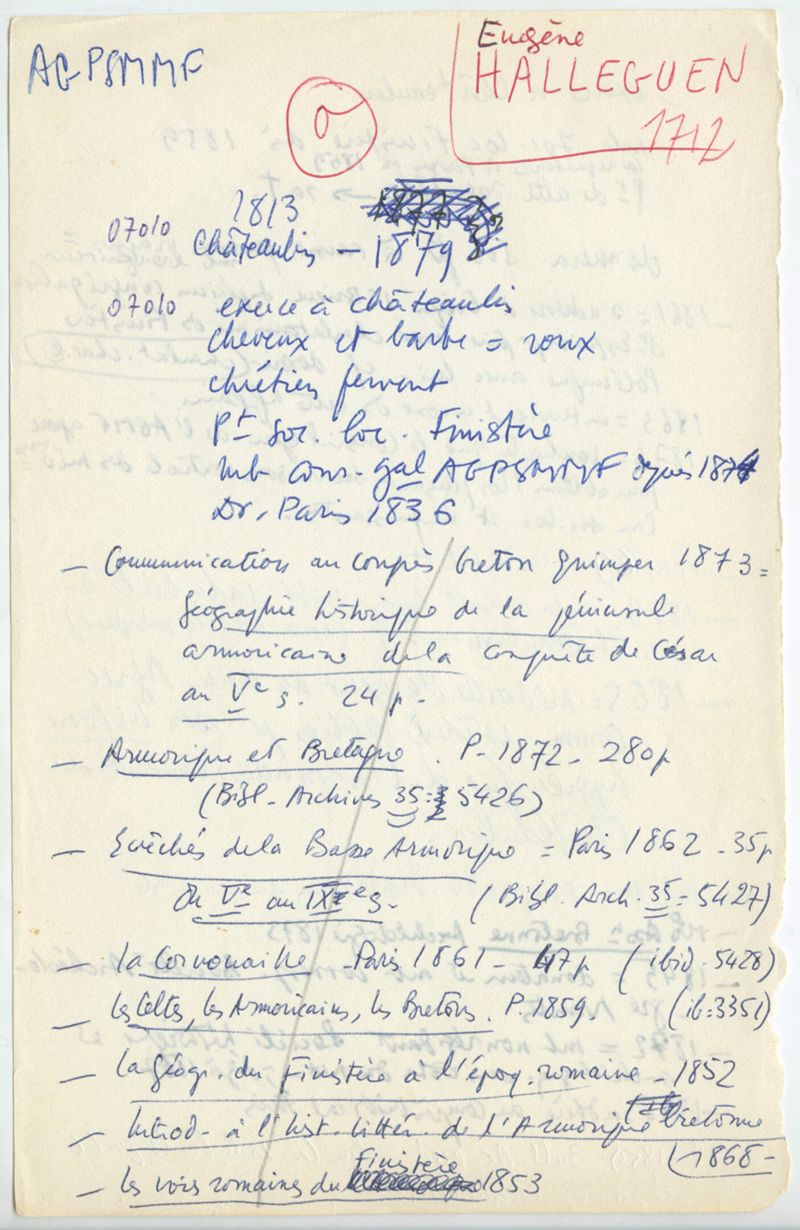 AGPSMMF
Eugène
HALLEGUEN
1712
a
1813
07010 Châteaulin - 1879
07010 exerce à châteaulin
cheveux et barbe = roux
chrétien fervent
Pt Soc. loc. Finistère
mb cons. gal AGPSMMF depuis 1874
Dr. Paris 1836
- Communication au congrès breton Quimper 1873 =
géographie historique de la péninsule
armoricaine de la conquête de César
au Ve s. 24 p.
- Armorique et Bretagne. P. 1872 - 280p
(Bibl. Archives 35 = 5426)
- Evêchés de la Basse Armorique = Paris 1862 - 35p
du Ve au IXe s. (Bibl. Arch. 35 = 5427)
- La Cornouaille Paris 1861 - 47p (ibid. 5428)
- les Celtes, les Armoricains, les Bretons. P. 1859. (ib = 3351)
- la géogr. du Finistère à l'époq. romaine - 1852
- Introd - à l'hist. littér. de l'Armorique bretonne
1868 -
- les voies romaines du Finistère 1853